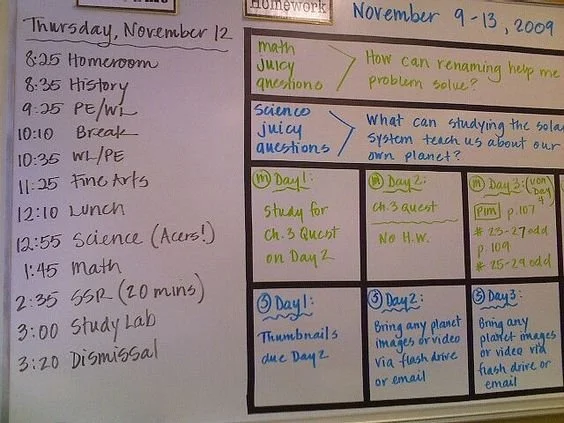 Homework
Thursday, November 12
8:25 Homeroom
8:35 History
9:25 PE/WL
10:10 Break
10:35 WL/PE
11:25 Fine Arts
12:10 Lunch
12:55 Science (Acers!)
1:45 Math
2:35 SSR (20 mins)
3:00 Study Lab
3:20 Dismissal
November 9-13, 2009
math
juicy
questions
How can renaming help me
problem solve?
science
juicy
questions
What can studying the sola
system teach us about our
own planet?
m Day 1:
Study for
Ch. 3 Quest
on Day 2
m Day 2:
Ch. 3 Quest
No H.W.
m Day 3: (von
Day
4
pim p. 107
# 23-27 odd
p. 109
# 25-29 odd
S Day 1:
Thumbnails
due Day 2
S Day 2:
Bring any planet
images or video
via flash drive
or email
S Day 3:
Bring any
planet images
or video via
flash drive or
email